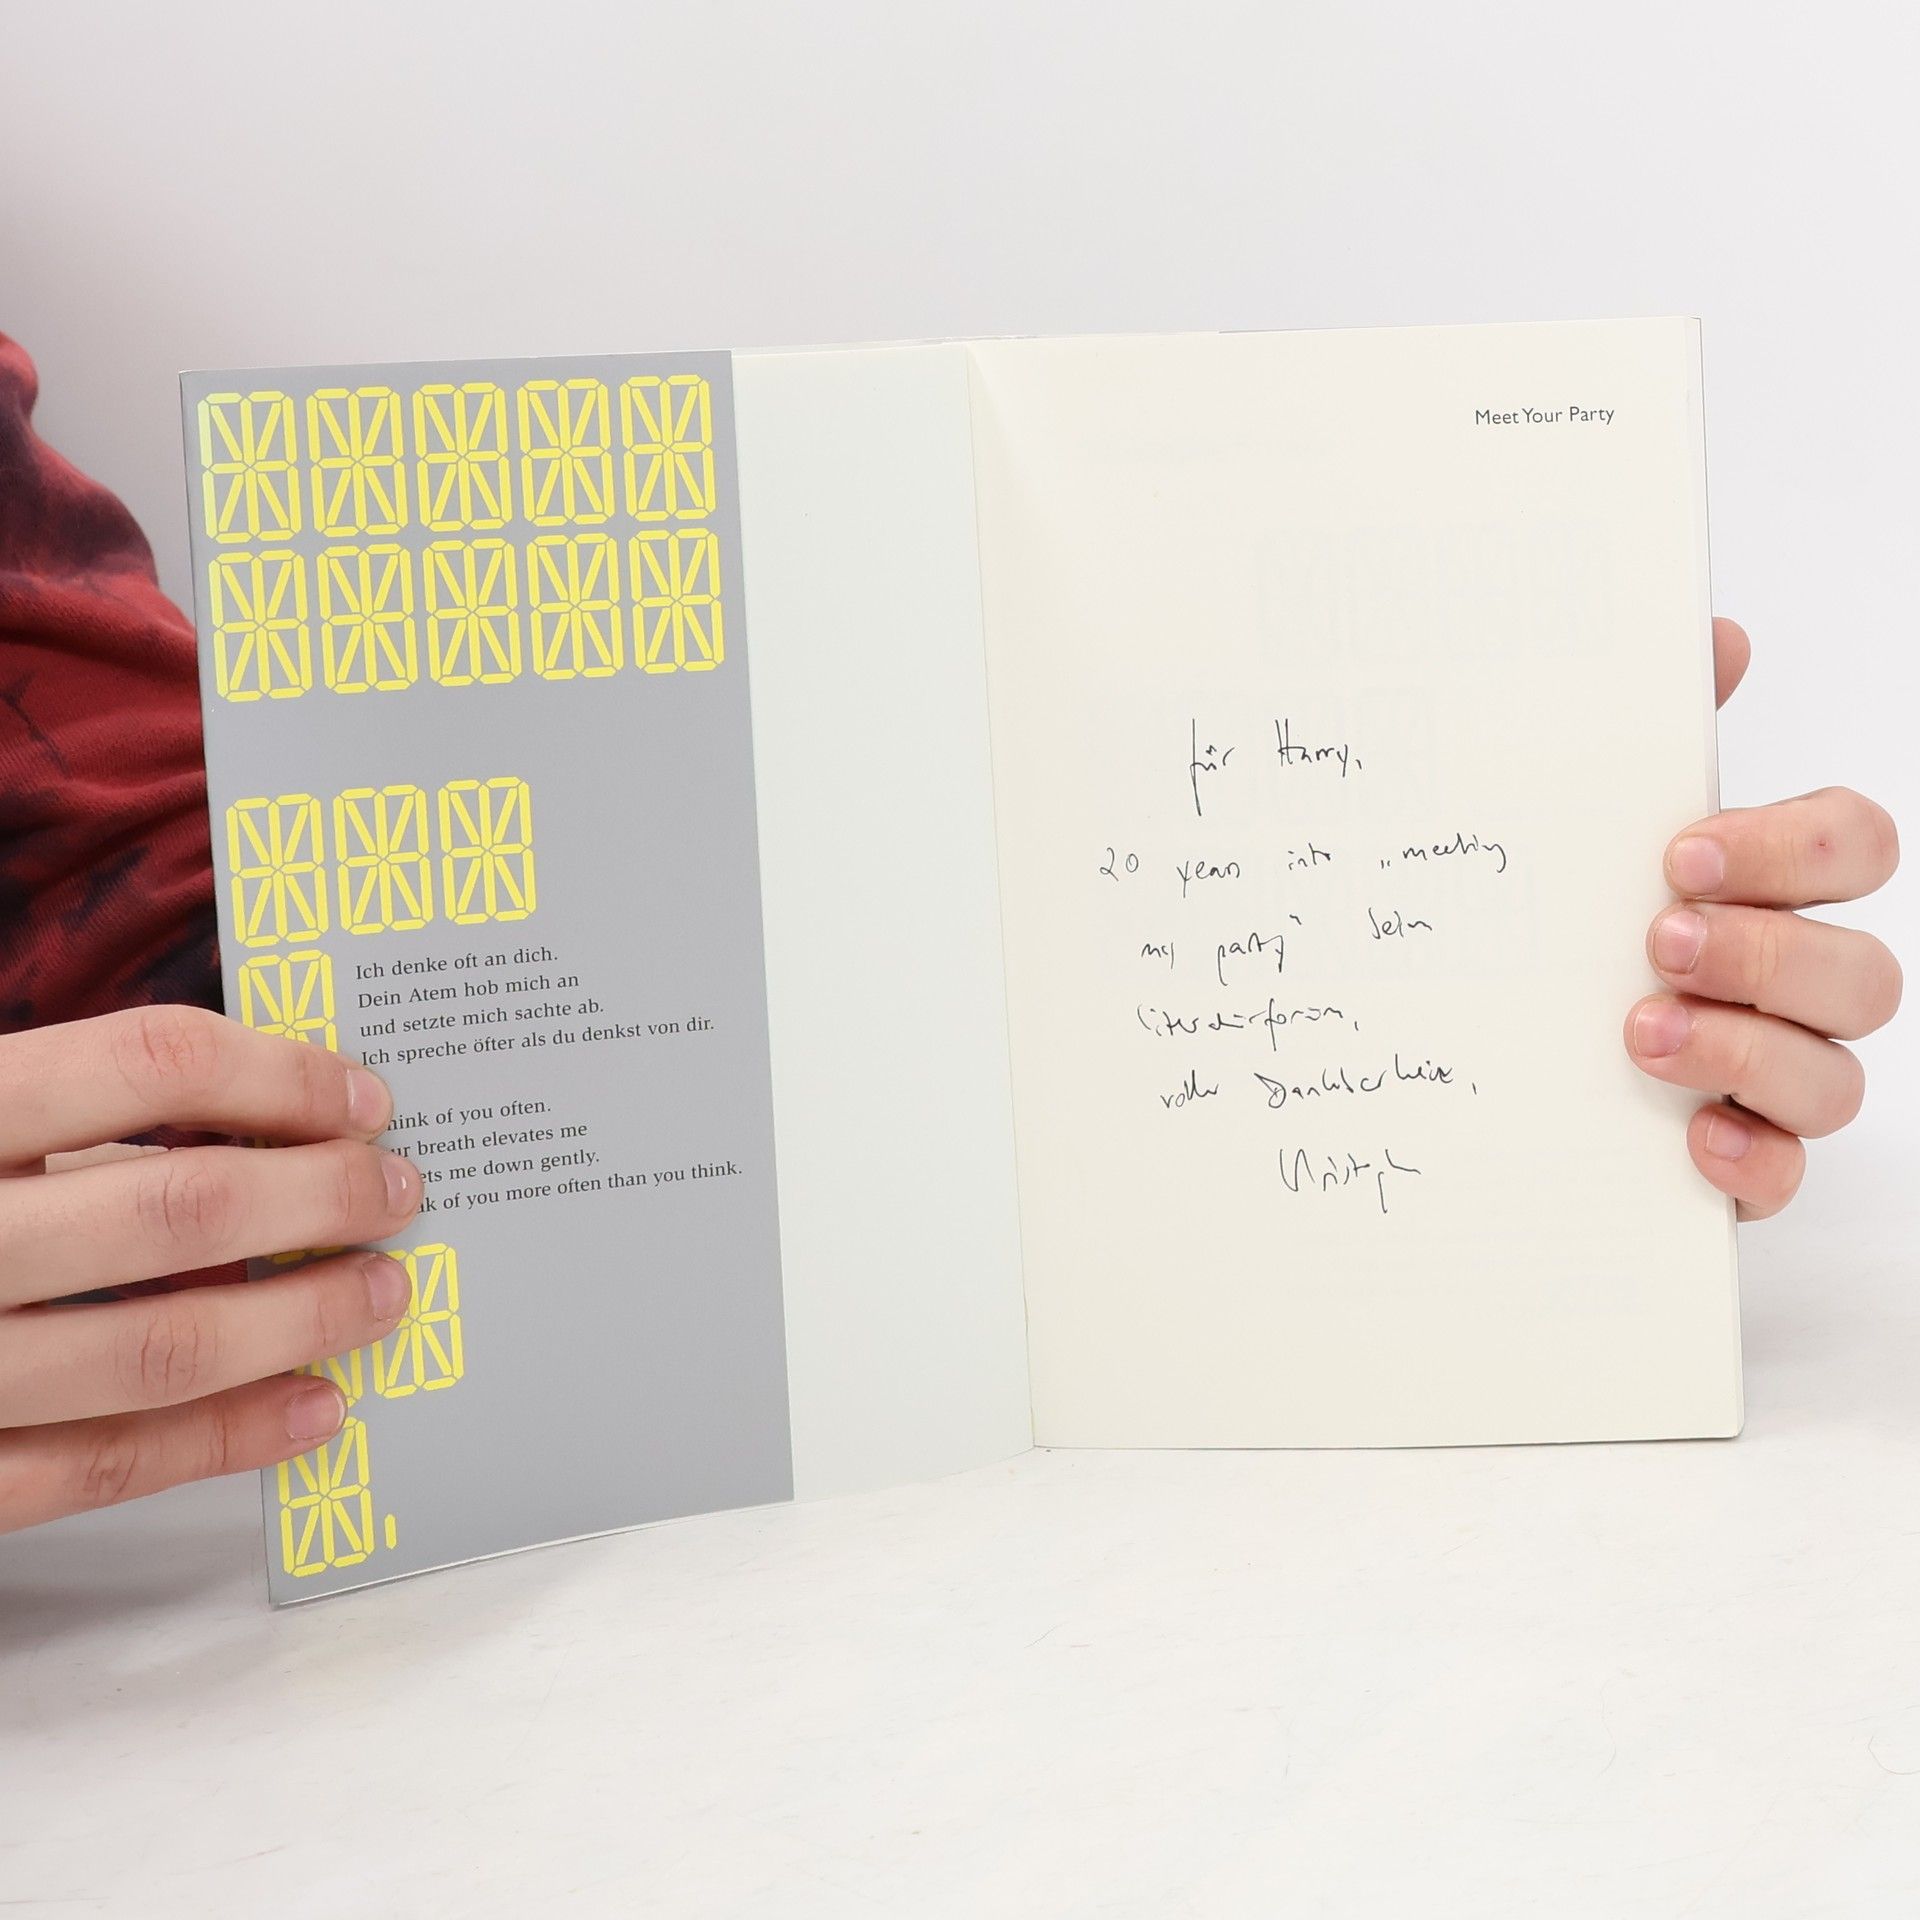 Ich denke oft an dich.
Dein Atem hob mich an
und setzte mich sachte ab.
Ich spreche öfter als du denkst von dir.
of you often.
breath elevates me
me down gently.
of you more often than you think.
Meet Your Party
für Harry,
20 years into „meeting
my party“ beim
literaturforum,
voller Dankbarkeit,
Christoph